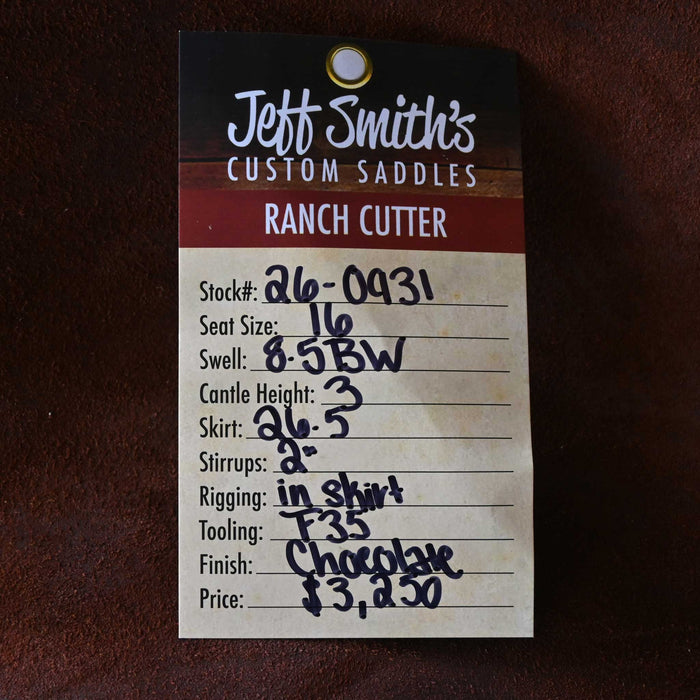 Jeff Smith's
CUSTOM SADDLES
RANCH CUTTER
Stock#: 26-0931
Seat Size: 16
Swell: 8.5BW
Cantle Height: 3
Skirt: 26.5
Stirrups: 2"
Rigging: in skirt
Tooling: F35
Finish: Chocolate
Price: $3,250